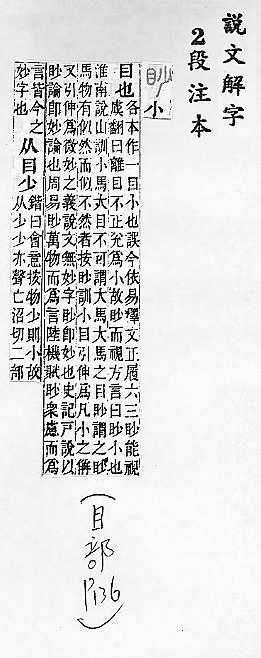 說文解字
2段注本
眇小
目也各本作一目小也誤今依易釋文正履六三眇能視
虞翻曰離目不正兌為小故眇而視方言曰眇小也
淮南說山訓小馬大目不可謂大馬大馬之目眇謂之眇
馬物有似然而似不然者按眇訓小目引伸為凡小之偁
又引伸為微妙之義說文無妙字眇即妙也史記戶說以
眇論即妙論也周易眇萬物而為言陸機賦眇衆慮而為
言皆今之
妙字也
从目少
鍇曰會意按物少則小故
从少少亦聲亡沼切二部
(目部 P136)